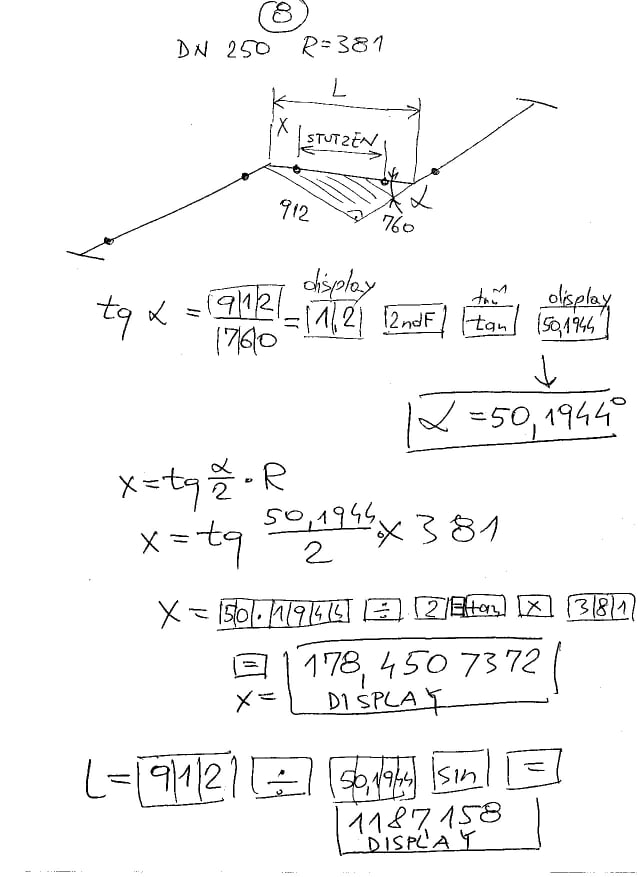 8
DN 250 R=381
L
X
STUTZEN
912
α
760
display
tan⁻¹
display
tg α = 912/760 = 1,2 2ndF tan 50,1944
↓
α = 50,1944°
x = tg α/2 · R
x = tg 50,1944/2 × 381
X = 50.1944 ÷ 2 = tan × 381
= 178,4507372
x = DISPLAY
L = 912 ÷ 50,1944 sin =
1187158
DISPLAY